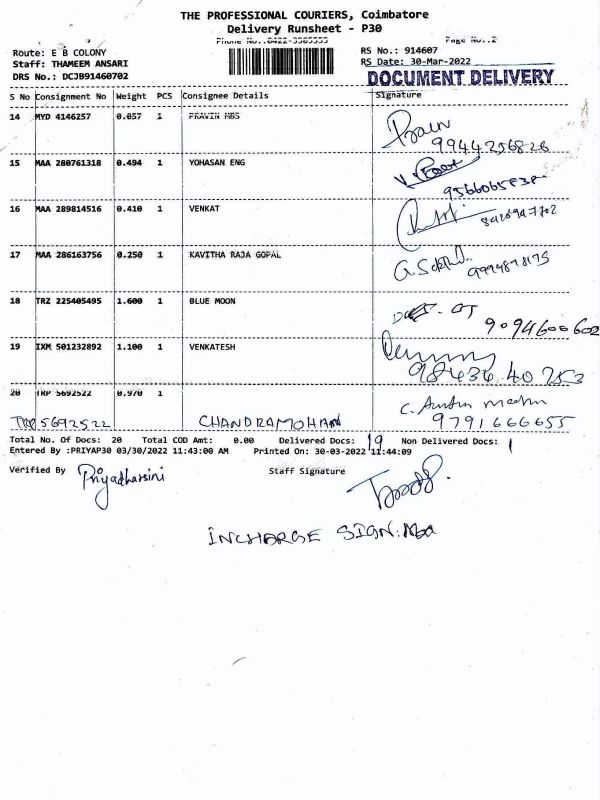 THE PROFESSIONAL COURIERS, Coimbatore
Delivery Runsheet - P30
Page No.:2
Route: E B COLONY
RS No.: 914607
Staff: THAMEEM ANSARI
RS Date: 30-Mar-2022
DRS No.: DCJB91460702
DOCUMENT DELIVERY
S No Consignment No Weight PCS Consignee Details Signature
14 MYD 4146257 0.057 1 PRAVIN MBS
9944256826
15 MAA 280761318 0.494 1 YOHASAN ENG
16 MAA 289814516 0.410 1 VENKAT
17 MAA 286163756 0.250 1 KAVITHA RAJA GOPAL
18 TRZ 225405495 1.600 1 BLUE MOON
9094600602
19 IXM 501232892 1.100 1 VENKATESH
98436 40253
20 TRP 5692522 0.970 1
TRP 5692522 CHANDRAMOHAN 9791666655
Total No. Of Docs: 20 Total COD Amt: 0.00 Delivered Docs: 19 Non Delivered Docs: 1
Entered By :PRIYAP30 03/30/2022 11:43:00 AM Printed On: 30-03-2022 11:44:09
Verified By Priyadharsini Staff Signature
INCHARGE SIGN: